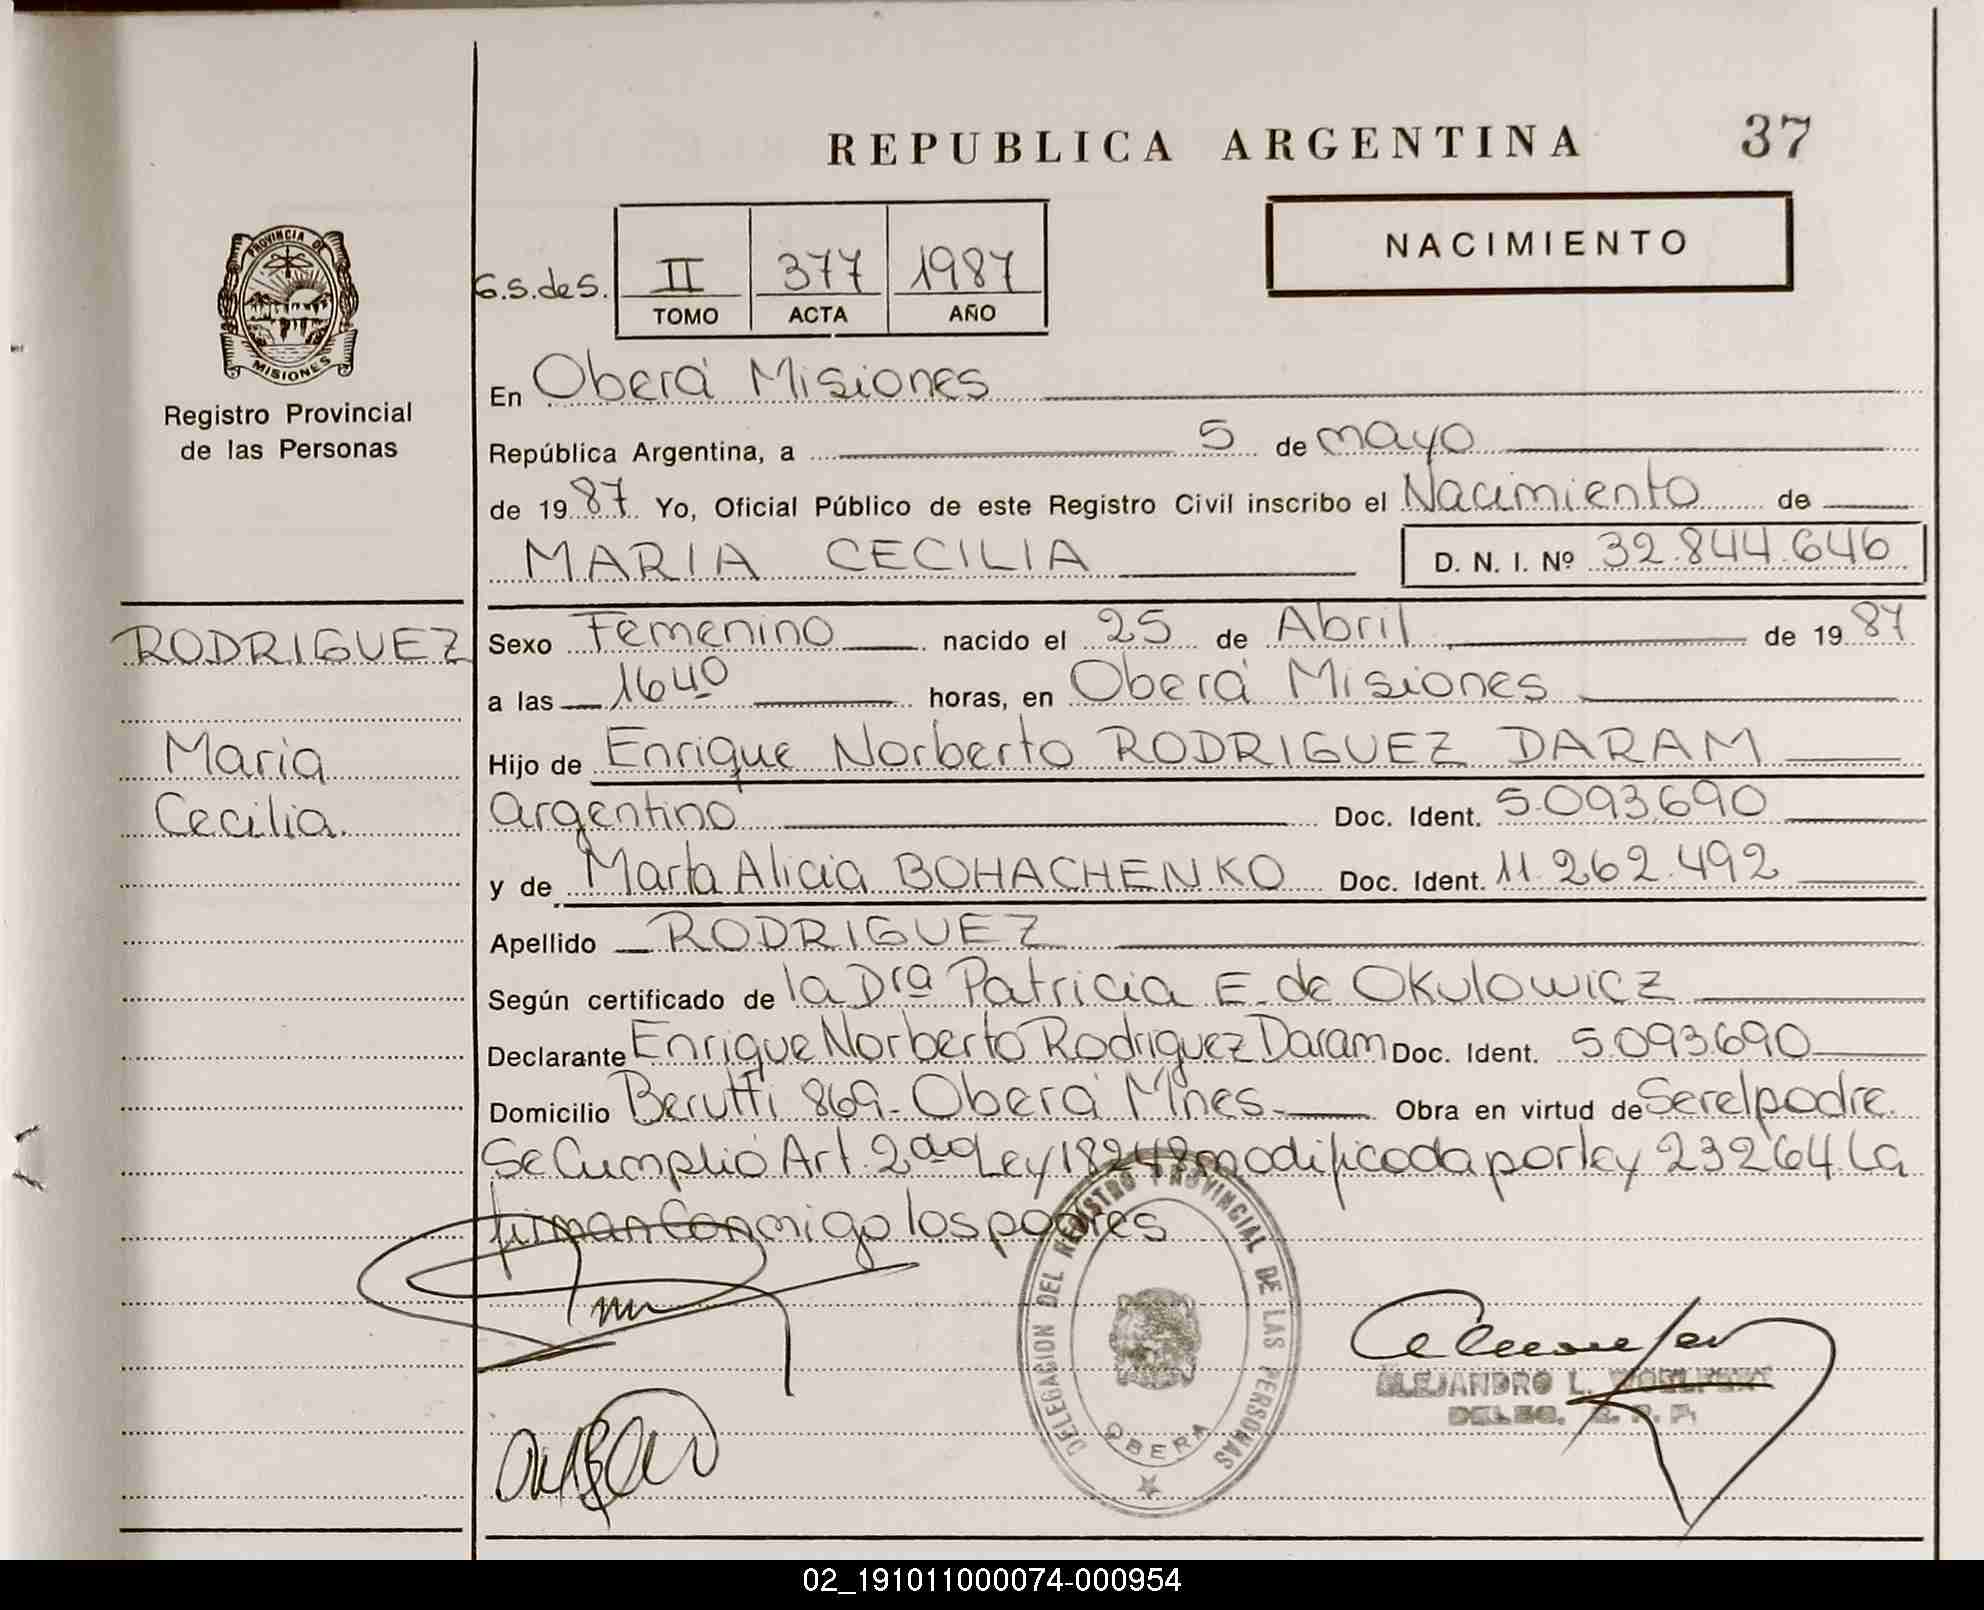 REPUBLICA ARGENTINA
37
PROVINCIA DE
MISIONES
Registro Provincial
de las Personas
G.S.deS.
II 377 1987
TOMO ACTA AÑO
NACIMIENTO
En Oberá Misiones
República Argentina, a 5 de mayo
de 1987 Yo, Oficial Público de este Registro Civil inscribo el Nacimiento de
MARIA CECILIA D. N. I. Nº 32.844.646
RODRIGUEZ
Maria
Cecilia.
Sexo Femenino nacido el 25 de Abril de 1987
a las 1640 horas, en Oberá Misiones
Hijo de Enrique Norberto RODRIGUEZ DARAM
argentino Doc. Ident. 5.093.690
y de Marta Alicia BOHACHENKO Doc. Ident. 11.262.492
Apellido RODRIGUEZ
Según certificado de la Dra Patricia E. de OKulowicz
Declarante Enrique Norberto Rodriguez Daram Doc. Ident. 5.093.690
Domicilio Berutti 869- Oberá Mnes. Obra en virtud de Ser el padre.
Se Cumplió Art. 2do Ley 18248 modificada por ley 23264. La
firman Conmigo los padres
DELEGACION DEL REGISTRO PROVINCIAL DE LAS PERSONAS
OBERA
ALEJANDRO L.
DELEG. R. P. P.
02_191011000074-000954